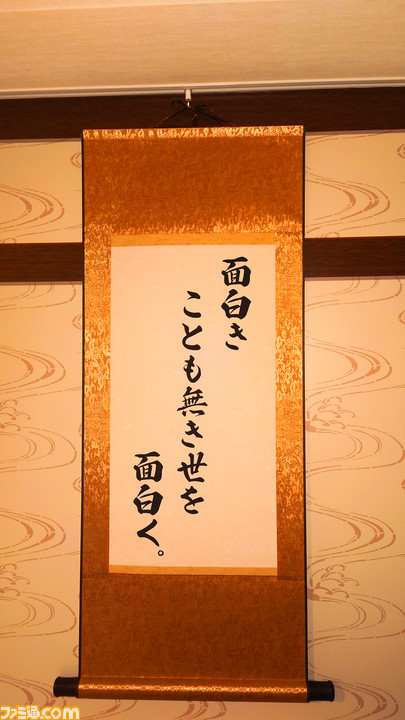 面白き
ことも無き世を
面白く。
ファミ通.com